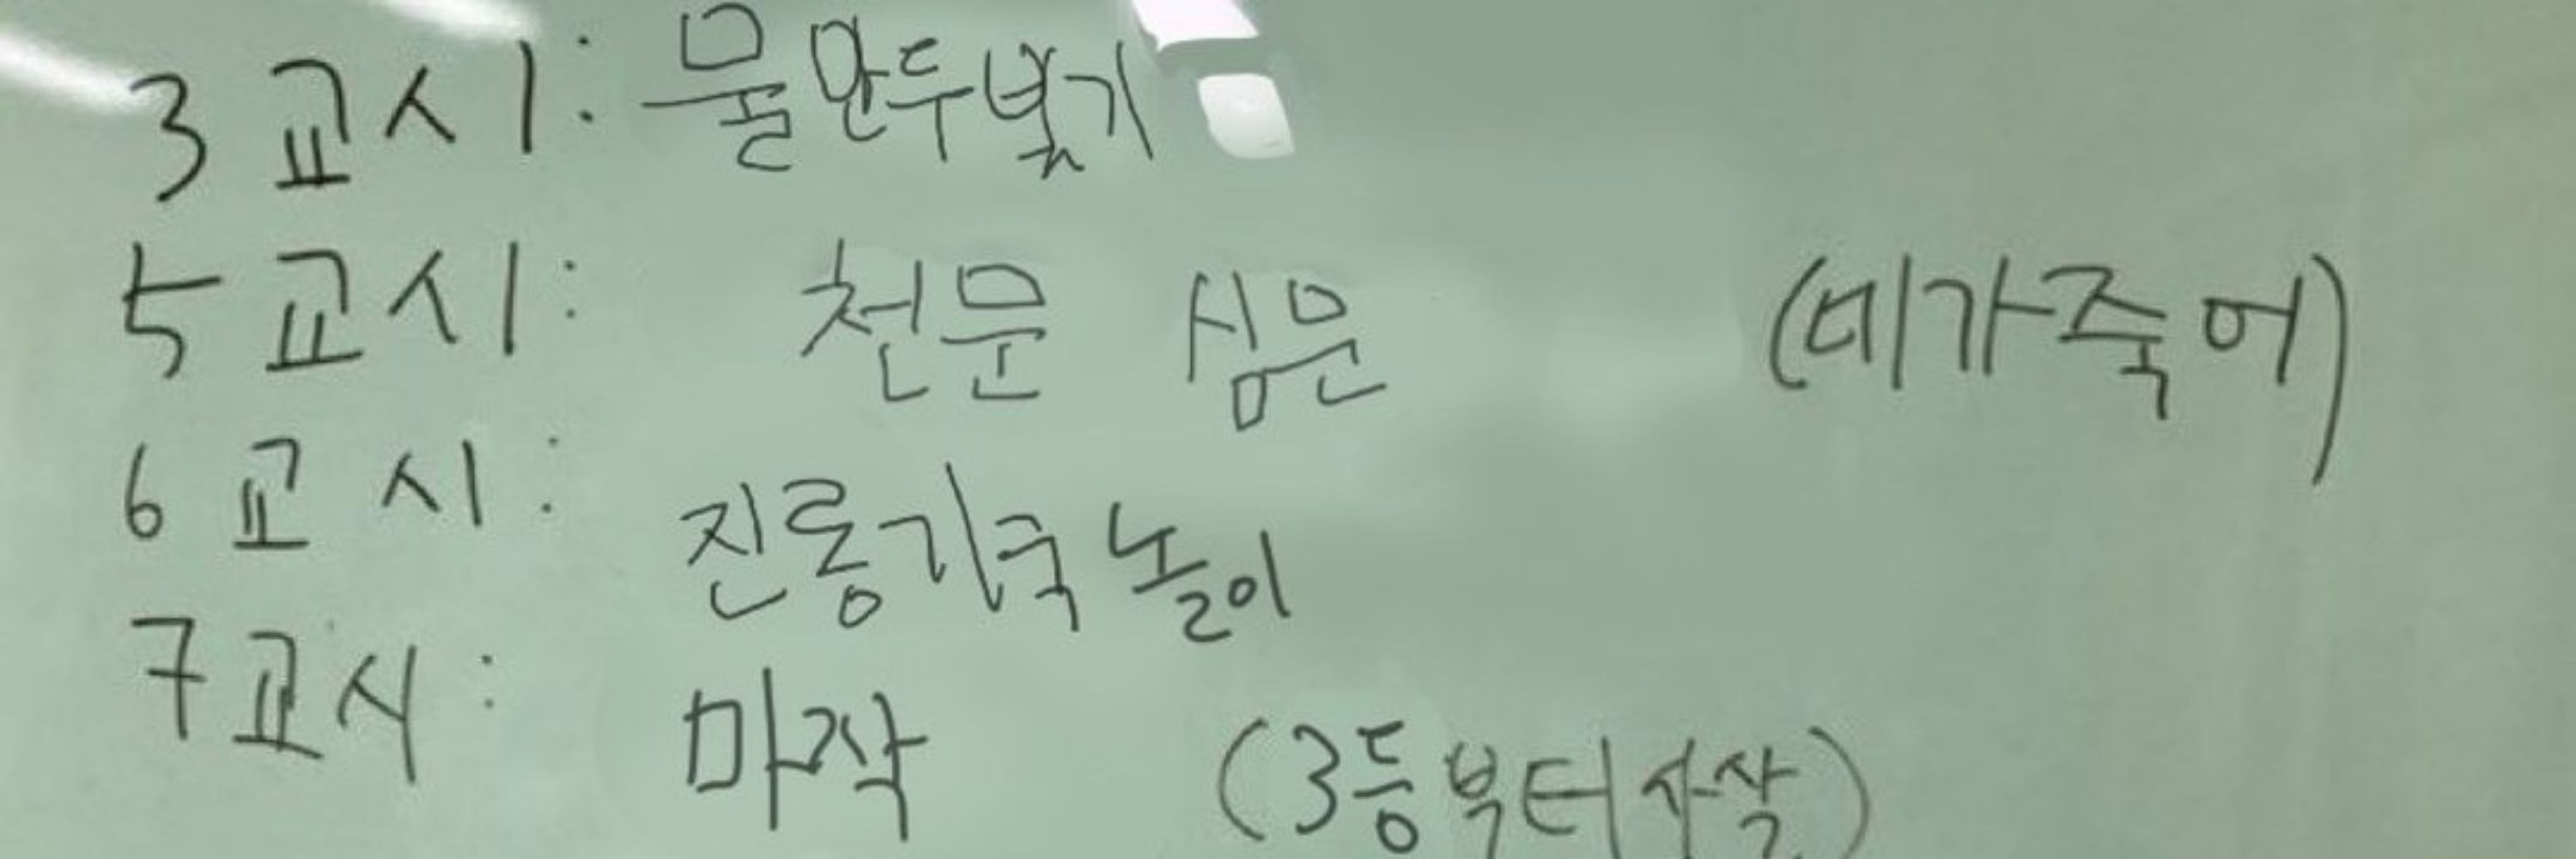 3교시: 물만두빚기
5교시: 천문 심문 (데가죽어)
6교시: 진롱기국놀이
7교시: 마작 (3등부터사살)